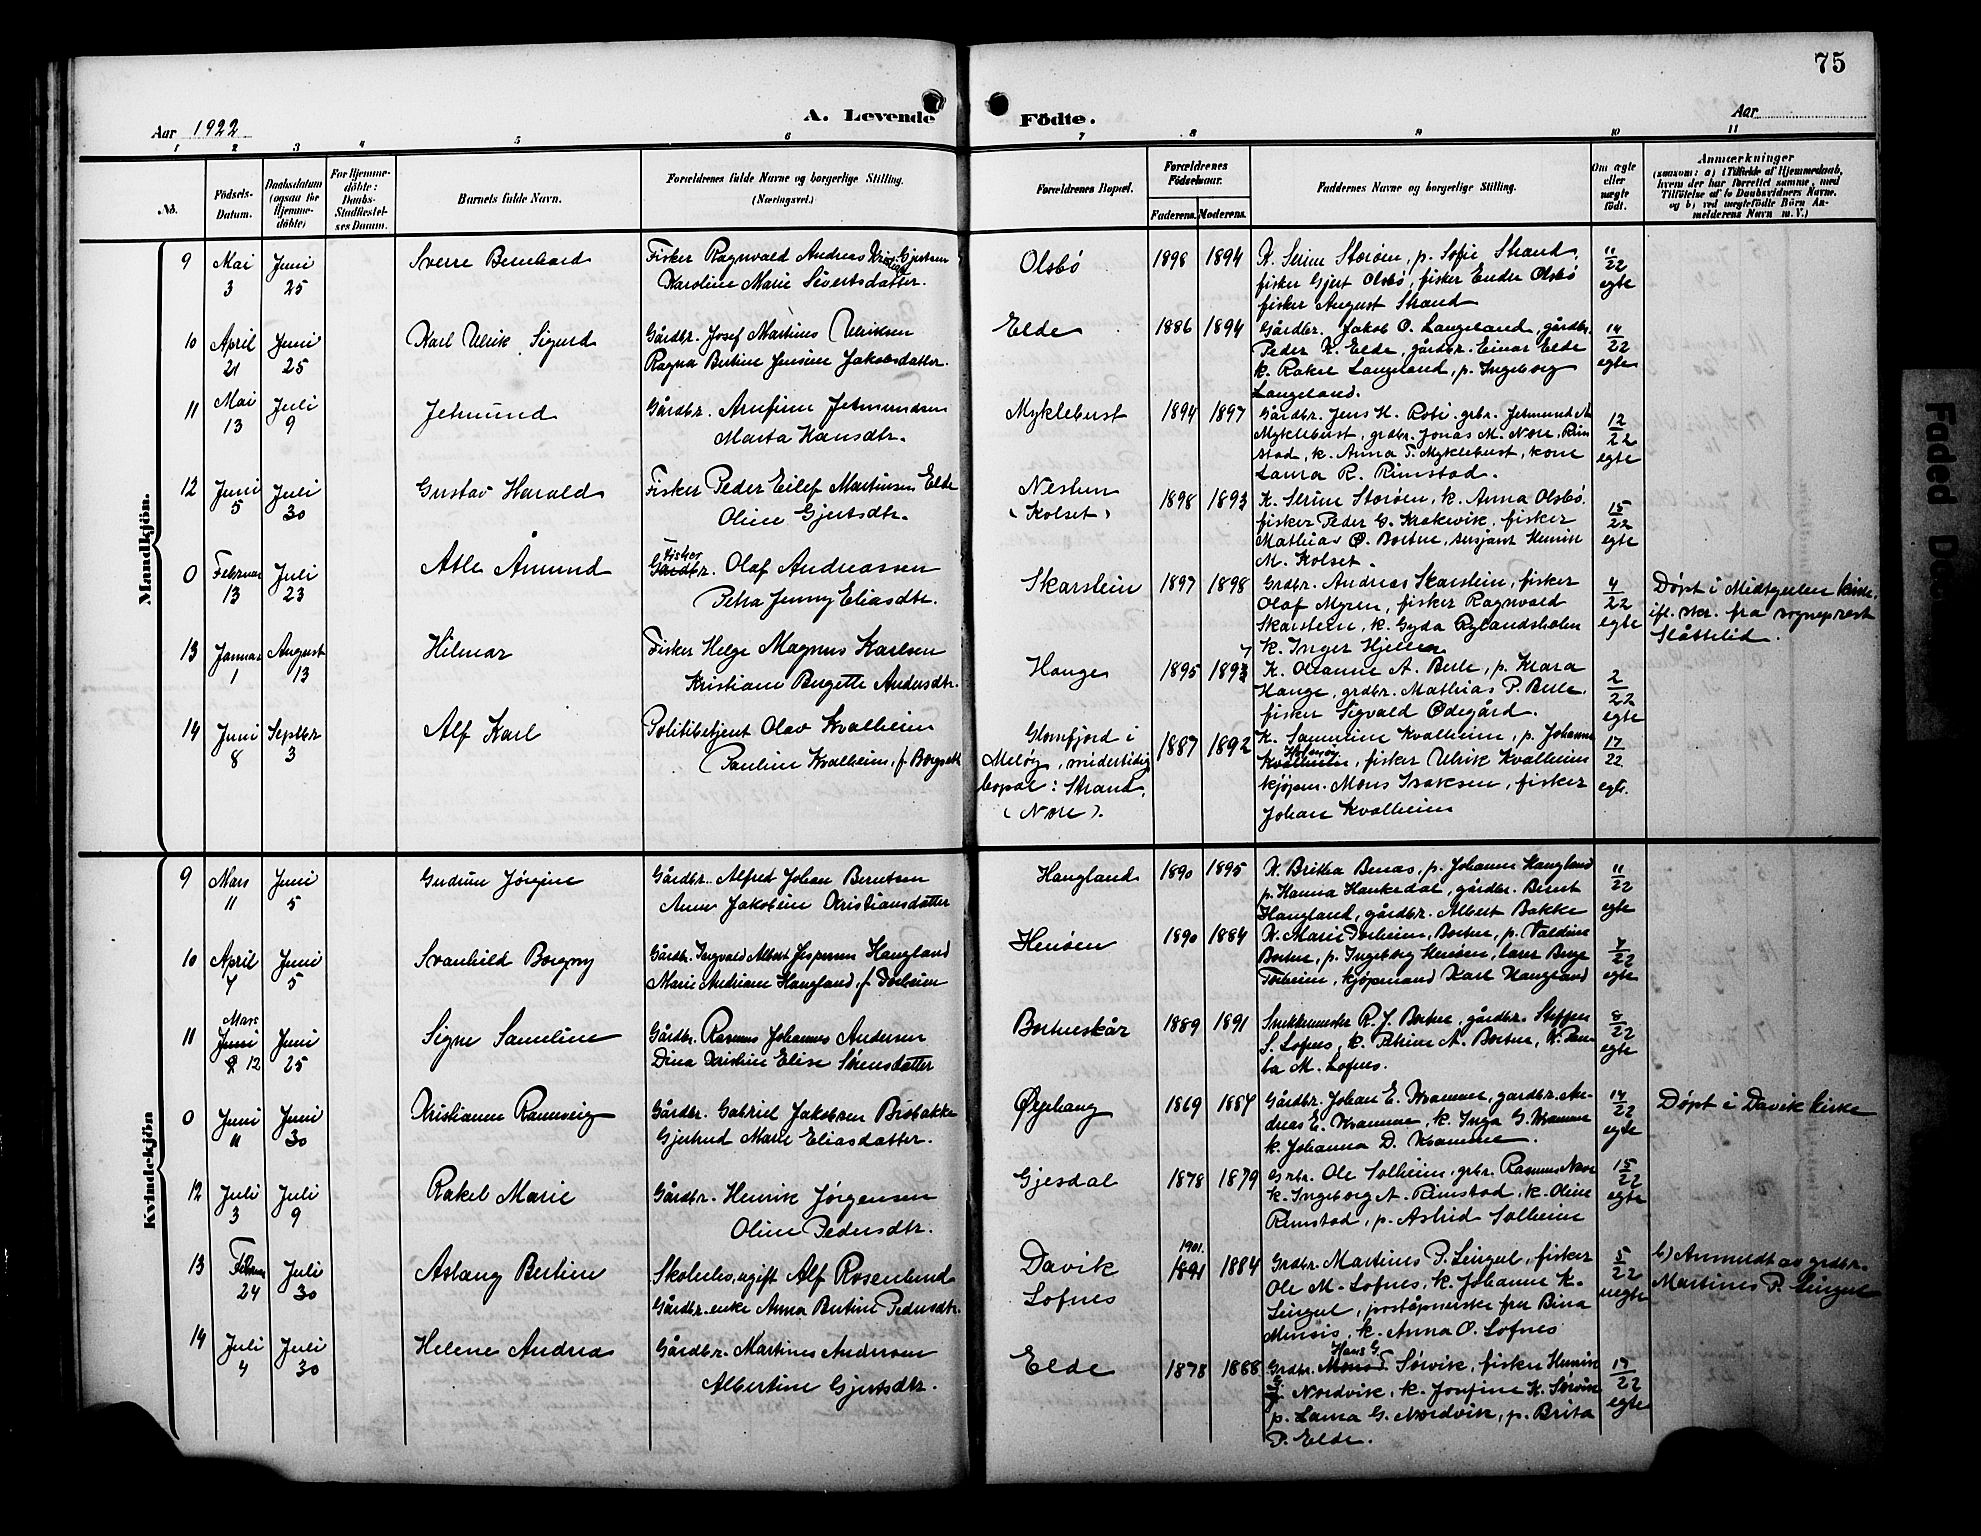 75
Aar 1922
A. Levende Födte.
Aar
1 2 3 4 5 6 7 8 9 10 11
No.
Födsels-Datum.
Daabsdatum (ogsaa for Hjemme-döbte)
For Hjemme-döbte: Daabs-Stadfæstel-ses Datum.
Barnets fulde Navn.
Forældrenes fulde Navne og borgerlige Stilling. (Næringsvei.)
Forældrenes Bopæl.
Forældrenes Födselsaar.
Faderens. Moderens.
Faddernes Navne og borgerlige Stilling.
Om ægte eller uægte födt.
Anmærkninger
(saasom: a) i Tilfælde af Hjemmedaab, hvem der har forrettet samme, med Tilföielse af to Daabsvidners Navne, og b) ved uægtefödte Börn Anmelderens Navn m. V.)
Mandkjön.
9 Mai 3 Juni 25 Sverre Bernhard
Fisker Ragnvald Andreas Gjertsen
Karoline Marie Sivertsdatter.
Olsbö 1898 1894
K. Serine Storöen, p. Sofie Strand,
fisker Gjert Olsbö, fisker Ender Olsbö
fisker August Strand
11/22 egte
10 April 21 Juni 25 Karl Ulrik Sigurd
Gårdbr. Josef Martines Ulriksen
Ragna Bertine Jensine Jakobsdatter.
Elde 1886 1894
Gårdbr. Jakob O. Langeland, gårdbr.
Peder K. Elde, gårdbr. Einar Elde
k. Rakel Langeland, p. Ingeborg
Langeland.
14/22 egte
11 Mai 13 Juli 9 Jetmund
Gårdbr. Arnfinn Jetmundsen
Marta Hansdtr.
Myklebust 1894 1897
Gårdbr. Jens H. Robi. grbr. Jetmund
Myklebust, grdbr. Jonas M. Nore, Rim
stad, k. Anna T. Myklebust, kone
Laura R. Rimstad.
12/22 egte
12 Juni 5 Juli 30 Gustav Harald
Fisker Peder Eilef Martinsen Elde
Oline Gjertsdtr.
(Kolset) 1898 1893
K. Serine Storöen, k. Anna Olsbö.
fisker Peder G. Krakevik, fisker
Mathias Ø. Bortne, sersjant Henrik
M. Kolset.
15/22 egte
0 Februar 13 Juli 23 Atle Åmund
Fisker
Gårdbr. Olaf Andreassen
Petra Jenny Eliasdtr.
Skarstein 1897 1898
Grdbr. Andreas Skarstein, fisker
Olaf Myren, fisker Ragnvald
Skarstein, k. Gyda Rylandsholm
k. Inger Hjellen
4/22 egte
Döpt i Midtgulen kirke,
ifl. skr. fra sogneprest
Slåttelid.
13 Januar 1 August 13 Hilmar
Fisker Helge Magnus Karlsen
Kristiane Bergette Andersdtr.
Hauge 1895 1893 7
K. Oleanne A. Berle, p. Klara
Hauge, grdbr. Mathias P. Berle.
fisker Sigvald Ødegård.
2/22 egte
14 Juni 8 Septbr 3 Alf Karl
Politibetjent Olav Kvalheim
Pauline Kvalheim, f. Borgseth
Glomfjord i
Meløy, midertidig
bopæl: Strand,
(Nore). 1887 1892
K. Sanneine Kvalheim, p. Johanne
Kvalheim, fisker Ulrik Kvalheim
kjøpm. Mons Isaksen, fisker
Johan Kvalheim
17/22. egte.
Kvindekjön
9 Mars 11 Juni 5 Gudrun Jörgine
Gårdbr. Alfred Johan Berntsen
Anne Jakobine Kristiansdatter
Haugland 1890 1895
K. Brithe Benas, p. Johanne Haugland
p. Hanna Haukedal, gårdbr. Bernt
Haugland, gårdbr. Albert Bakke
11/22 egte
10 April 7 Juni 5 Svanhild Borgny
Gårdbr. Ingvald Albert Jespersen Haugland
Marie Andriane Haugland, f. Torheim
Henöen 1890 1884
K. Marie Torheim, Bortne, p. Valdine
Bortne, p. Ingeborg Henöen, lærer Berge
Torheim, kjøpmand Karl Haugland
7/22 egte
11 Mars Juni 12 Juni 25 Signe Sameline
Gårdbr. Rasmus Johannes Andersen
Dina Kristine Elise Sörensdatter
Bortneskår 1889 1891
Snekkermester R. J. Bortne, gårdbr. Steffen
S. Lofnes, k. Petrine A. Bortne, K. Pau-
la M. Lofnes.
8/22 egte
0 Juni 11 Juni 30 Kristianne Rannveig
Gårdbr. Gabriel Jakobsen Brobakke
Gjertrud Marie Eliasdatter.
Øyehaug 1869 1884
Gårdbr. Johan E. Kramme, gardbr. An-
dreas E. Kramme, k. Inga G. Kramme
k. Johanna D. Kramme.
14/22 egte
Döpt i Davik kirke
12 Juli 3 Juli 9 Rakel Marie
Gårdbr. Henrik Jörgensen
Oline Pedersdtr.
Gjesdal 1878 1879
Grbr. Ole Solheim, grbr. Rasmus Nore
k. Ingeborg A. Rimstad, k. Oline
Rimstad, p. Astrid Solheim
15/22 egte
13 Februar 24 Juli 30 Aslaug Bertine
Skoleelev, ugift Alf Rosenlund
Gårdbr. enke Anna Bertine Pedersdtr.
Davik
Lofnes 1901. 1891 1884
Grdbr. Martines P. Lingul, fisker
Ole M. Lofnes, k. Johanne K.
Lingul, poståpnerske fru Bina
Mensis, k. Anna O. Lofnes
5/22 uegte
b) Anmeldt av grdbr.
Martines P. Lingul
14 Juli 4 Juli 30 Helene Andrea
Gårdbr. Martines Andersen
Albertine Gjertsdtr.
Elde 1878 1888
Hans G.
Grdbr. Sørvik, fisker Henrik
Nordvik, k. Josefine K. Sørvik
p. Laura G. Nordvik, p. Brita
P. Elde.
17/22 egte
Faded Doc